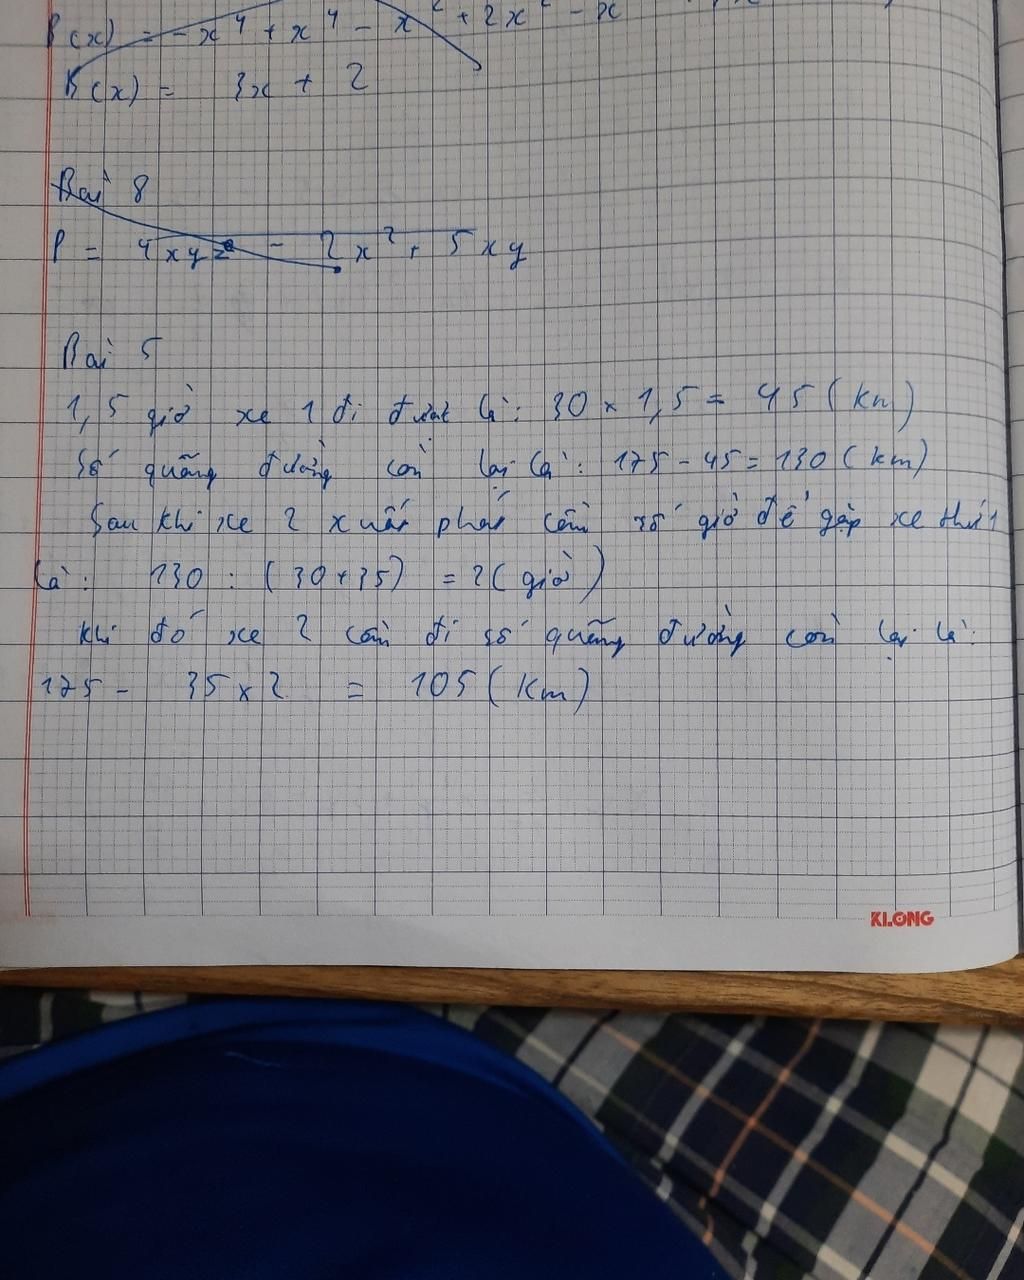 P(x) = -x⁴ + x⁴ - x² + 2x² - x
B(x) = 3x + 2
Bài 8
P = 4xyz - 2x² + 5xy
Bài 5
1,5 giờ xe 1 đi được là: 30 x 1,5 = 45 (km)
Số quãng đường còn lại là: 175 - 45 = 130 (km)
Sau khi xe 2 xuất phát cần số giờ để gặp xe thứ 1
là: 130 : (30 + 35) = 2 (giờ)
Khi đó xe 2 cần đi số quãng đường còn lại là:
175 - 35 x 2 = 105 (km)
KLONG